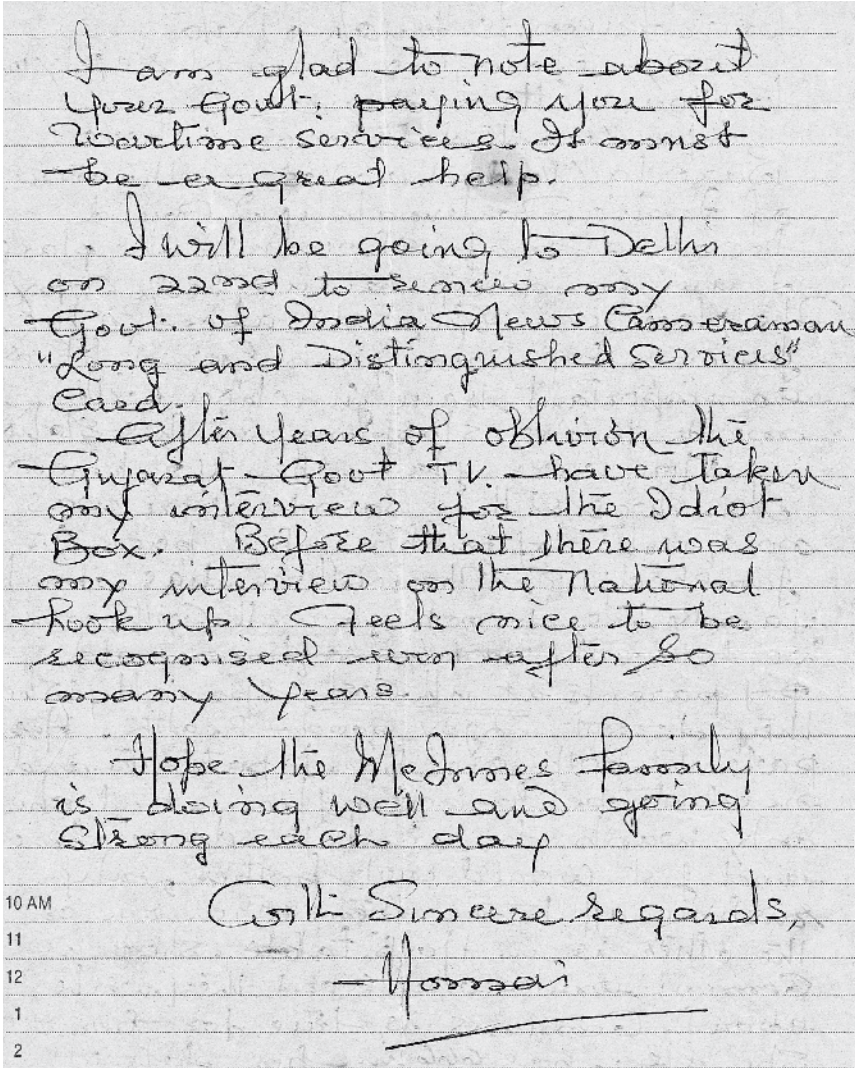 I am glad to note about
your Govt. paying you for
Wartime services. It must
be a great help.
I will be going to Delhi
on 22nd to renew my
Govt. of India News Cameraman
"Long and Distinguished Services"
Card.
After years of oblivion the
Gujarat Govt TV. have taken
my interview for the Idiot
Box. Before that there was
my interview on the National
hook up. Feels nice to be
recognised even after so
many years.
Hope the McInnes family
is doing well and going
strong each day
With Sincere regards,
Homai
10 AM
11
12
1
2